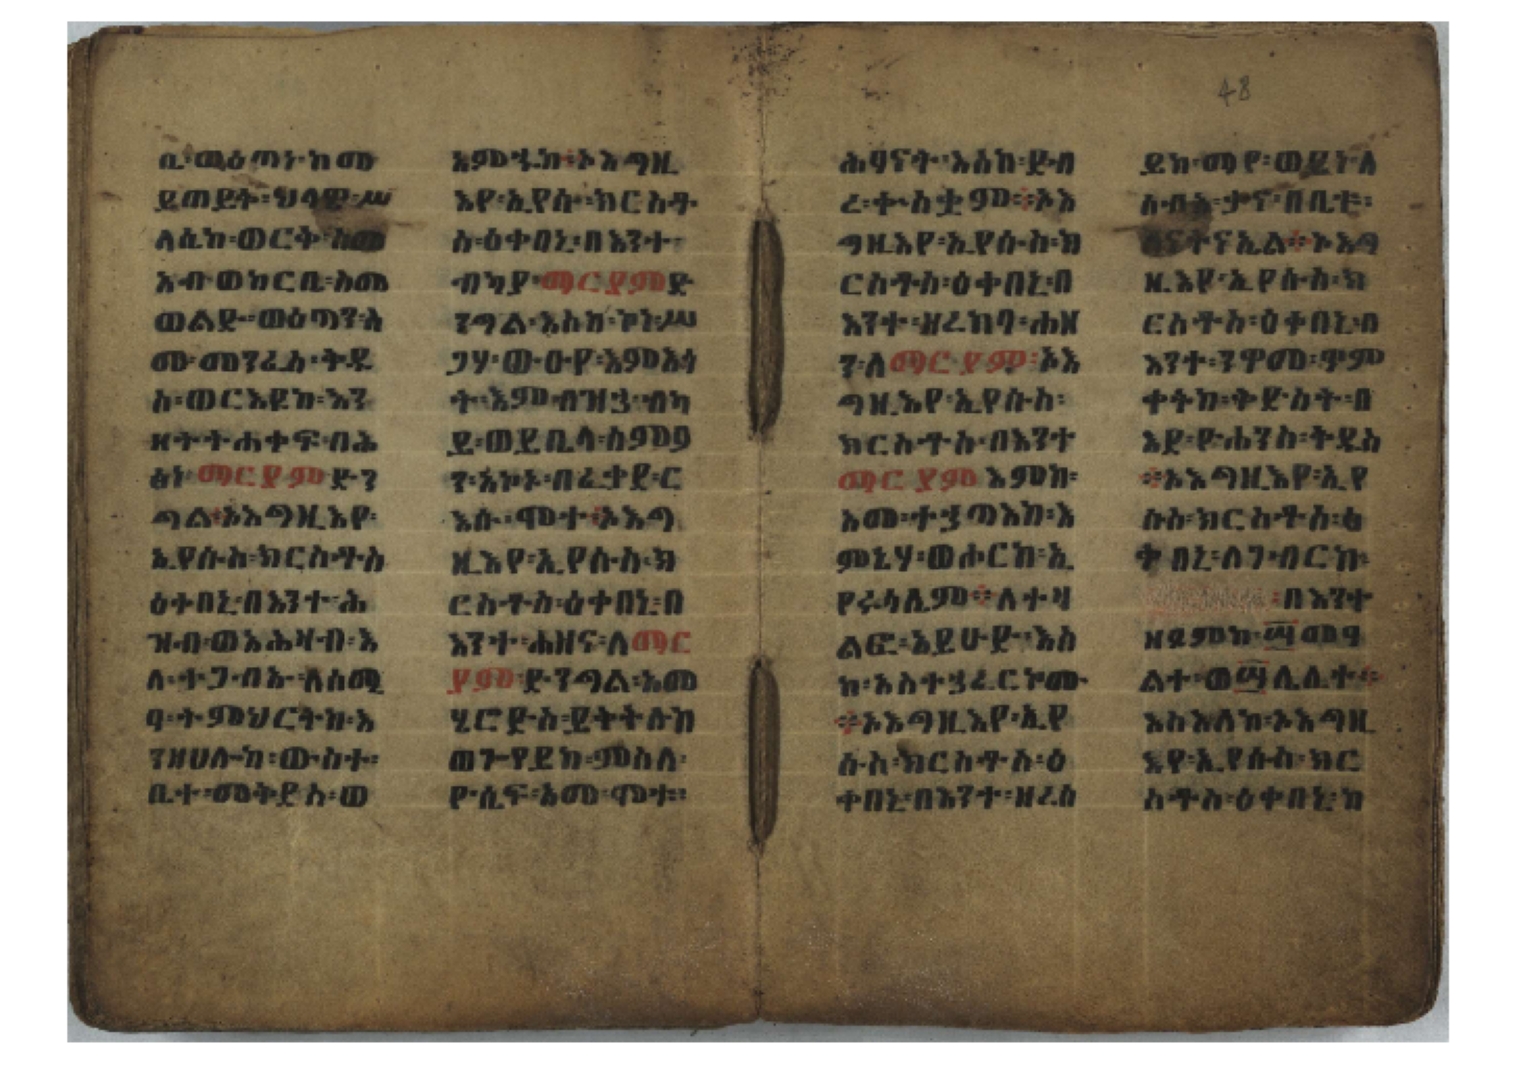 ቢ፡ ወዕጣነ፡ ከመ
ይጠይት፡ ህላዌ፡ ሥ
ላሴከ፡ ወርቅ፡ ስመ
አብ፡ ወከርቤ፡ ስመ
ወልድ፡ ወዕጣን፡ ስ
መ፡ መንፈስ፡ ቅዱ
ስ፡ ወርእይከ፡ እን
ዘ፡ ትትሐቀፍ፡ በሕ
ፅነ፡ ማርያም፡ ድን
ግል፡ ኦእግዚእየ፡
ኢየሱስ፡ ክርስቶስ
ዕቀበኒ፡ በእንተ፡ ሕ
ዝብ፡ ወአሕዛብ፡ እ
ለ፡ ተጋብኡ፡ ለሰሚ
ዓ፡ ትምህርትከ፡ እ
ንዘ፡ ሀሎከ፡ ውስተ፡
ቤተ፡ መቅደስ፡ ወ
እምዔከ፡ ኦእግዚ
እየ፡ ኢየሱስ፡ ክርስቶ
ስ፡ ዕቀበኒ፡ በእንተ፡
ብካያ፡ ማርያም፡ ድ
ንግል፡ እስከ፡ ኮነ፡ ሥ
ጋሃ፡ ውዑየ፡ እምእሳ
ት፡ እምብዝኃ፡ ብካ
ይ፡ ወይቤላ፡ ስምዖ
ን፡ አኮኑ፡ በፈቃደ፡ ር
እሱ፡ ሞተ፡ ኦእግ
ዚእየ፡ ኢየሱስ፡ ክ
ርስቶስ፡ ዕቀበኒ፡ በ
እንተ፡ ሐዘና፡ ለማር
ያም፡ ድንግል፡ አመ
ሄሮድስ፡ ይትትሉከ
ወጐየይከ፡ ምስለ፡
ዮሴፍ፡ አመ፡ ሞተ፡
ሕፃናት፡ እስከ፡ ይብ
ረ፡ ተ፡ ስቋም፡ ኦእ
ግዚእየ፡ ኢየሱስ፡ ክ
ርስቶስ፡ ዕቀበኒ፡ በ
እንተ፡ ዝረከባ፡ ሐዘ
ን፡ ለማርያም፡ ኦእ
ግዚእየ፡ ኢየሱስ፡
ክርስቶስ፡ በእንተ
ማርያም፡ እምከ፡
አመ፡ ተኃጣእከ፡ እ
ምኔሃ፡ ወሖርከ፡ ኢ
የሩሳሌም፡ ለተዛ
ልፎ፡ አይሁድ፡ እስ
ከ፡ አስተኃፈርኮሙ
ኦእግዚእየ፡ ኢየ
ሱስ፡ ክርስቶስ፡ ዕ
ቀበኒ፡ በእንተ፡ ዘረሰ
ይከ፡ ማየ፡ ወይነ፡ ለ
ሰብአ፡ ቃና፡ በቤተ፡
ቃናት፡ ናኢል፡ ኦእግ
ዚእየ፡ ኢየሱስ፡ ክ
ርስቶስ፡ ዕቀበኒ፡ በ
እንተ፡ ንዋመ፡ ጥም
ቀትከ፡ ቅድስት፡ በ
እደ፡ ዮሐንስ፡ ቅዱስ
ኦእግዚእየ፡ ኢየ
ሱስ፡ ክርስቶስ፡ ዕ
ቀበኒ፡ ለገብርከ፡
በእንተ
ዘጾምከ፡ ፵መዓ
ልተ፡ ወ፵ሌሊተ፡
እስእለከ፡ ኦእግዚ
እየ፡ ኢየሱስ፡ ክር
ስቶስ፡ ዕቀበኒ፡ ከ